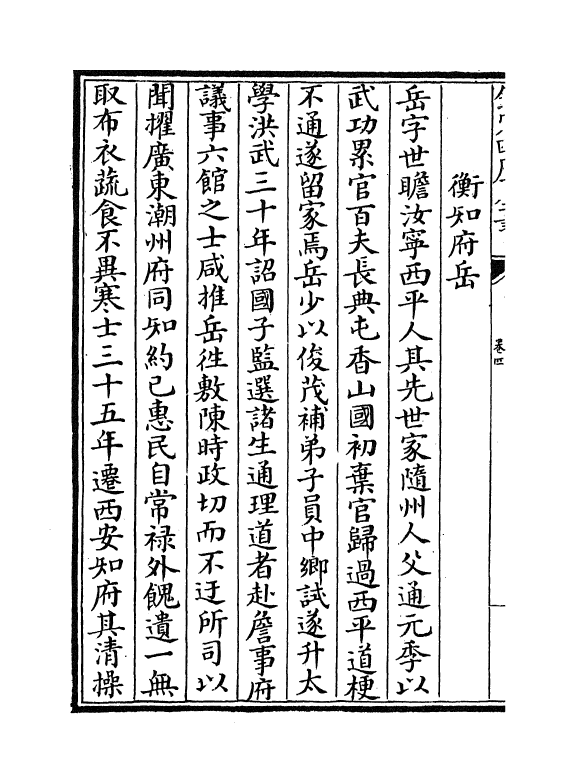 衡知府岳
岳字世瞻汝寧西平人其先世家隨州人父通元季以
武功累官百夫長典屯香山國初棄官歸過西平道梗
不通遂留家焉岳少以俊茂補弟子員中鄉試遂升太
學洪武三十年詔國子監選諸生通理道者赴詹事府
議事六館之士咸推岳徃敷陳時政切而不迂所司以
聞擢廣東潮州府同知約已惠民自常禄外餽遺一無
取布衣蔬食不異寒士三十五年遷西安知府其清操
卷四